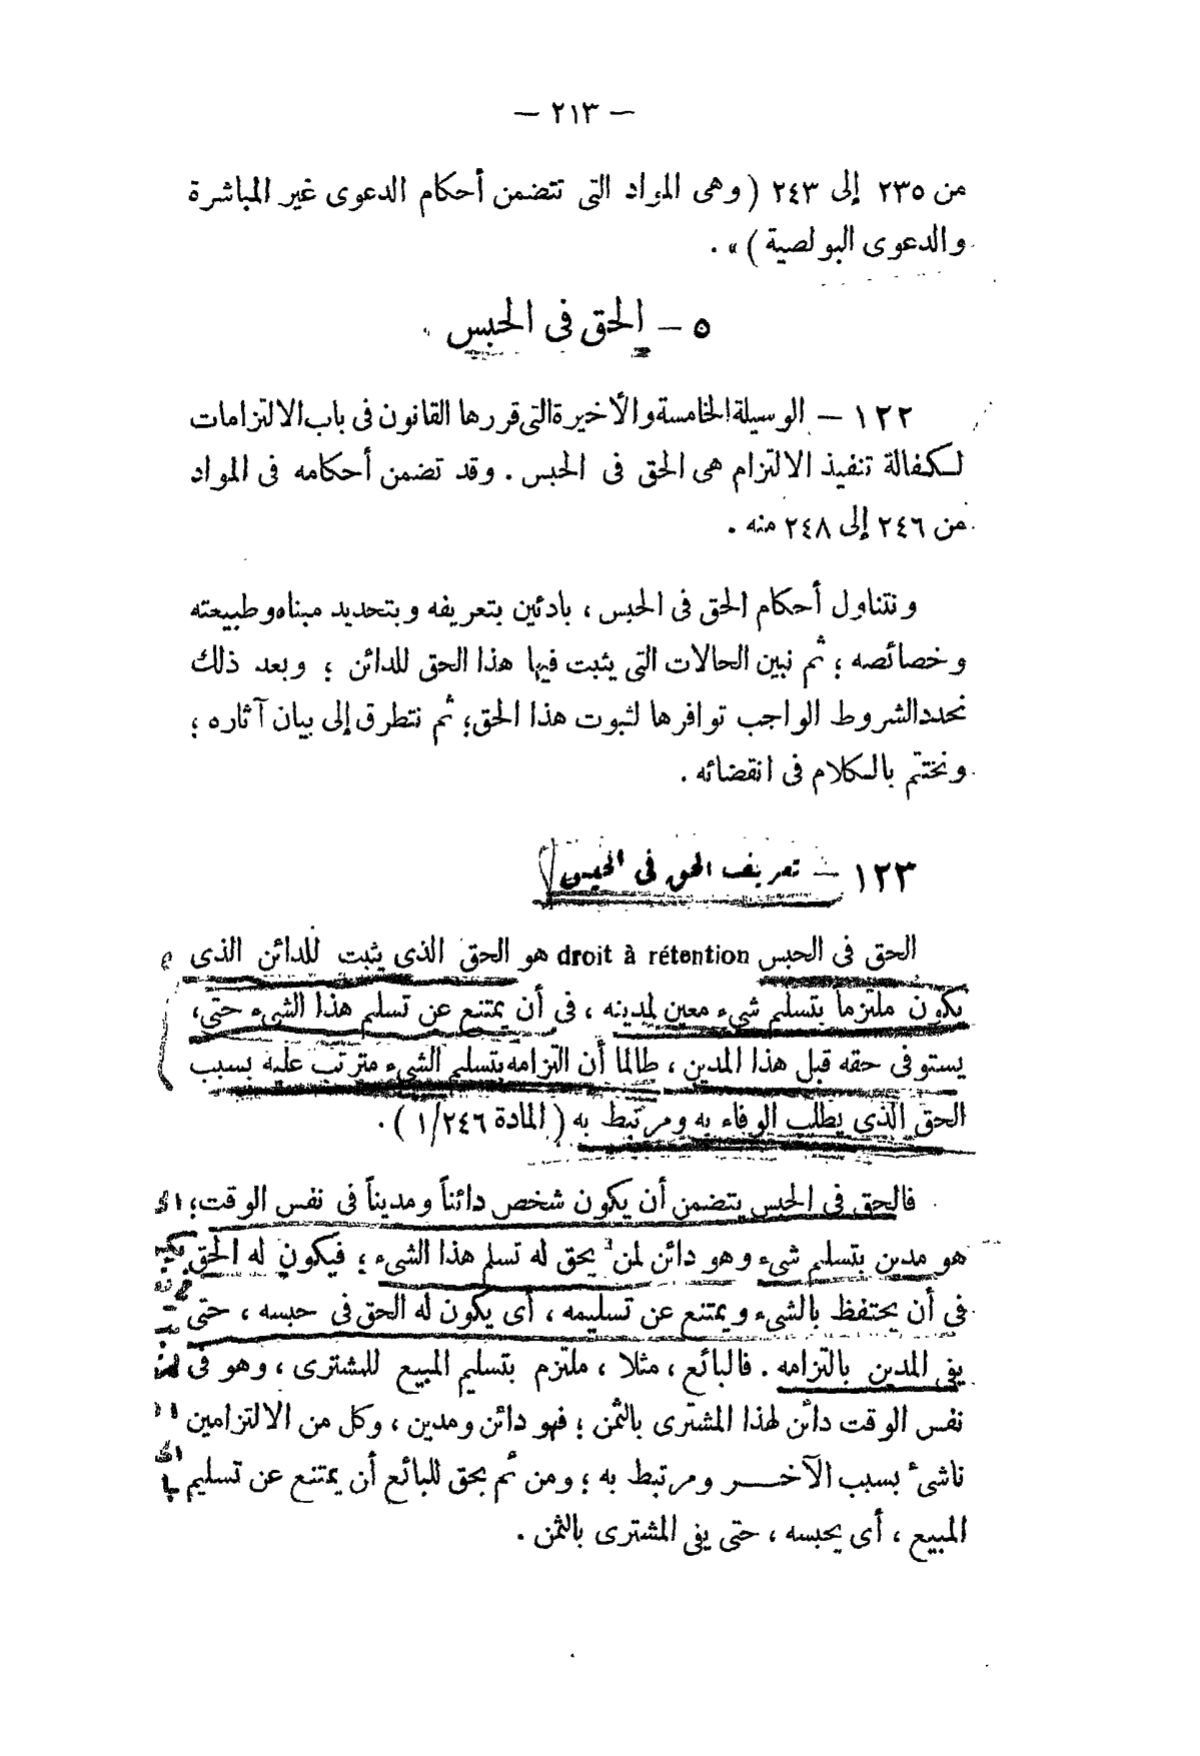 — ٢١٣ —
من ٢٣٥ إلى ٢٤٣ ( وهى المواد التى تتضمن أحكام الدعوى غير المباشرة
والدعوى البولصية ) » .
٥ – الحق فى الحبس
١٢٢ – الوسيلة الخامسة والأخيرة التى قررها القانون فى باب الالتزامات
لكفالة تنفيذ الالتزام هى الحق فى الحبس . وقد تضمن أحكامه فى المواد
من ٢٤٦ إلى ٢٤٨ منه .
ونتناول أحكام الحق فى الحبس ، بادئين بتعريفه وبتحديد مبناه وطبيعته
وخصائصه ؛ ثم نبين الحالات التى يثبت فيها هذا الحق للدائن ؛ وبعد ذلك
نحدد الشروط الواجب توافرها لثبوت هذا الحق؛ ثم نتطرق إلى بيان آثاره ؛
ونختتم بالكلام فى انقضائه .
١٢٣ – تعريف الحق فى الحبس
الحق فى الحبس droit à rétention هو الحق الذى يثبت للدائن الذى
يكون ملتزما بتسليم شىء معين لمدينه ، فى أن يمتنع عن تسليم هذا الشىء حتى
يستوفى حقه قبل هذا المدين ، طالما أن التزامه بتسليم الشىء مترتب عليه بسبب
الحق الذى يطلب الوفاء به ومرتبط به ( المادة ١/٢٤٦ ) .
فالحق فى الحبس يتضمن أن يكون شخص دائناً ومديناً فى نفس الوقت؛
هو مدين بتسليم شىء وهو دائن لمن يحق له تسلم هذا الشىء ؛ فيكون له الحق
فى أن يحتفظ بالشىء ويمتنع عن تسليمه ، أى يكون له الحق فى حبسه ، حتى
يفى المدين بالتزامه . فالبائع ، مثلا ، ملتزم بتسليم المبيع للمشترى ، وهو فى
نفس الوقت دائن لهذا المشترى بالثمن ؛ فهو دائن ومدين ، وكل من الالتزامين
ناشىء بسبب الآخـــر ومرتبط به ؛ ومن ثم يحق للبائع أن يمتنع عن تسليم
المبيع ، أى يحبسه ، حتى يفى المشترى بالثمن .